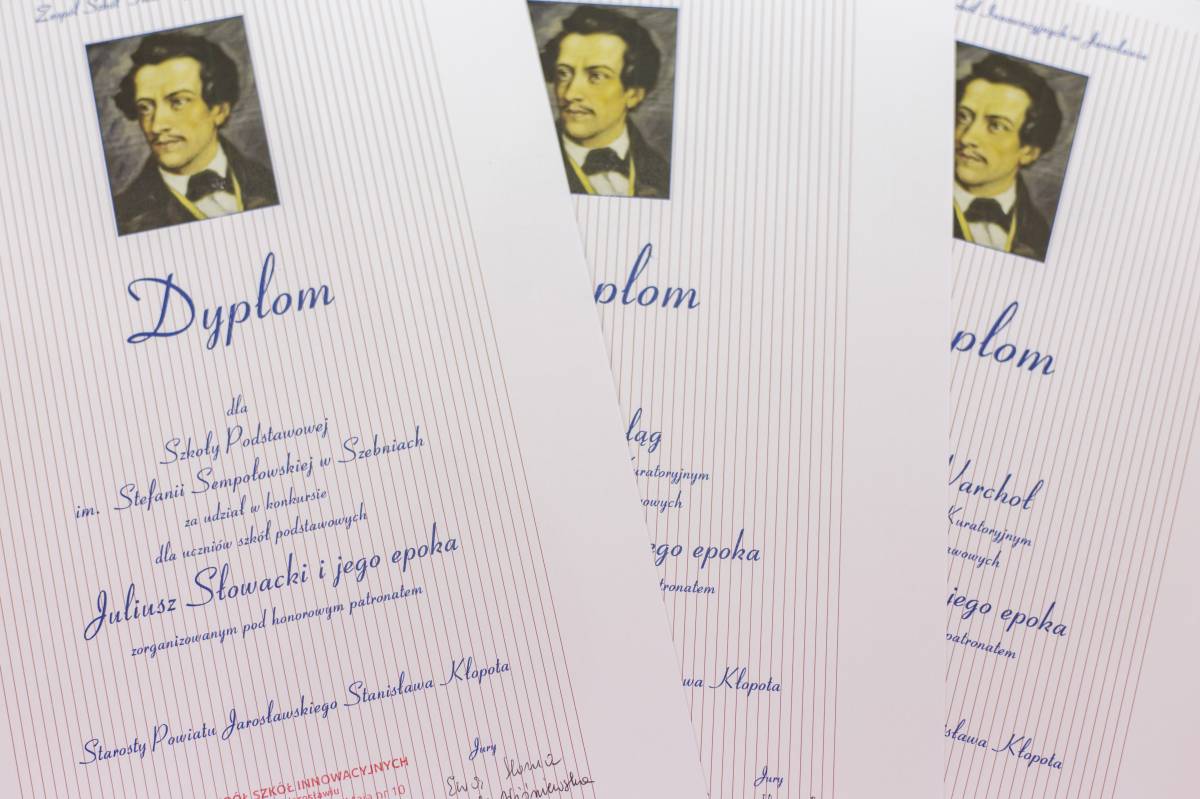 Dyplom
dla
Szkoły Podstawowej
im. Stefanii Sempołowskiej w Szebniach
za udział w konkursie
dla uczniów szkół podstawowych
Juliusz Słowacki i jego epoka
zorganizowanym pod honorowym patronatem
Starosty Powiatu Jarosławskiego Stanisława Kłopota
Jury
ÓŁ SZKÓŁ INNOWACYJNYCH
nr 10
płom
ląg
uratoryjnym
owych
go epoka
tronatem
wa Kłopota
Jury
Innowacyjnych w Jarosławiu
plom
Warchoł
Kuratoryjnym
awowych
jego epoka
patronatem
sława Kłopota